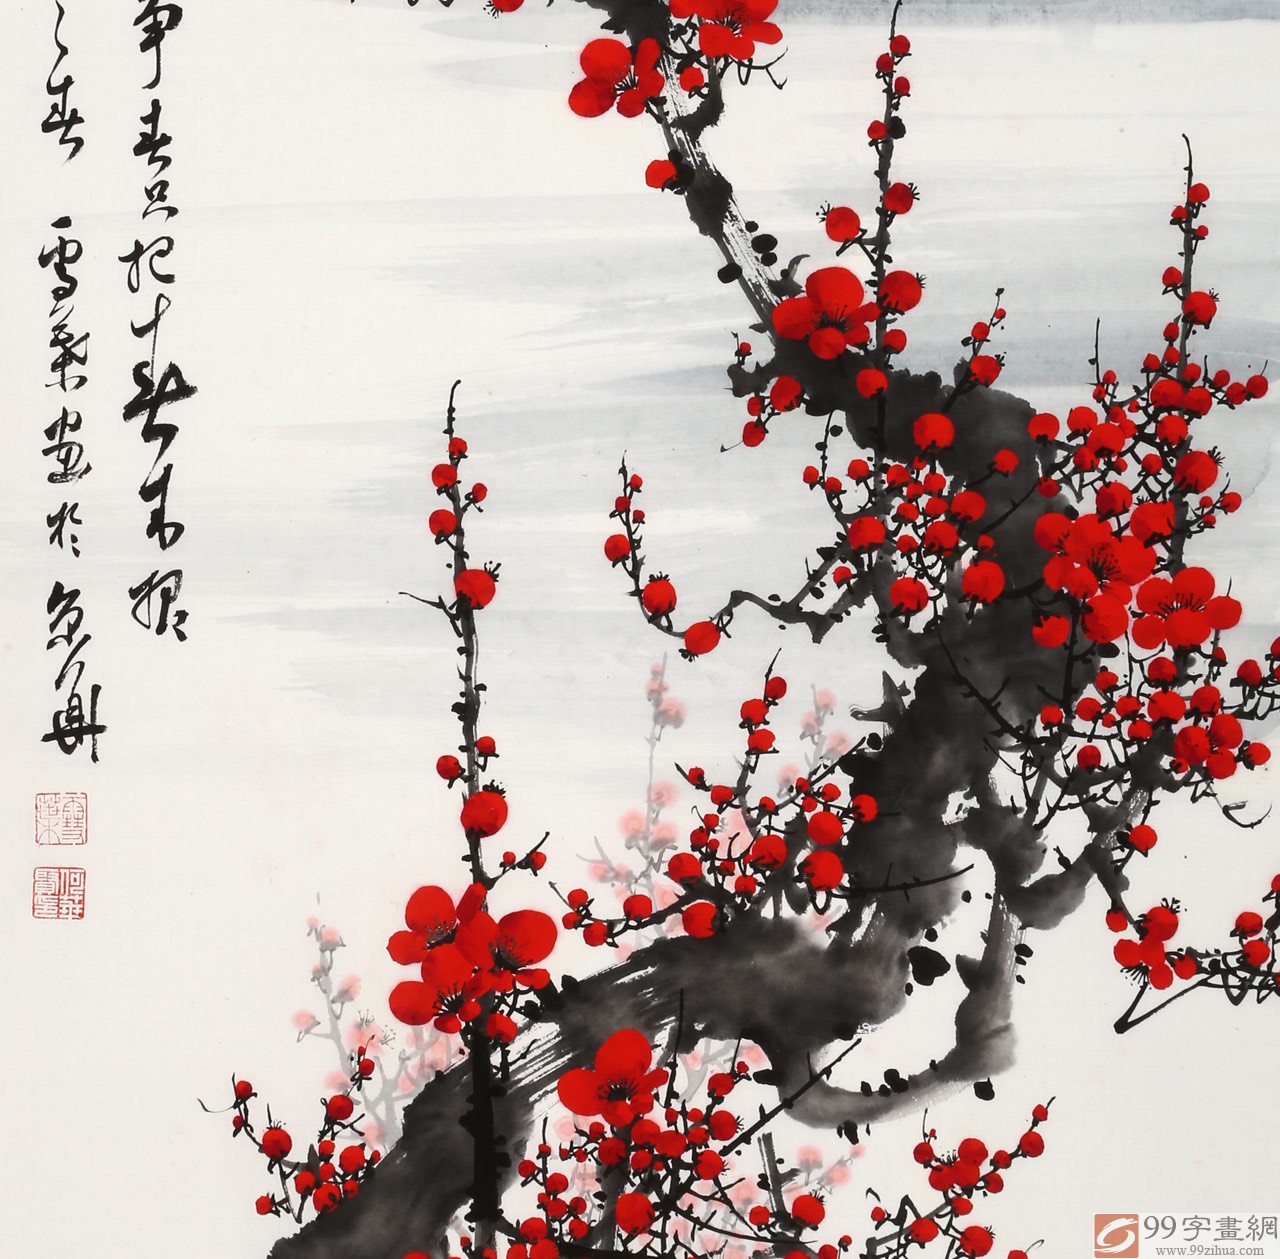 争春只把春来报
春 雪葉画於京華
99字畫網
www.99zihua.com